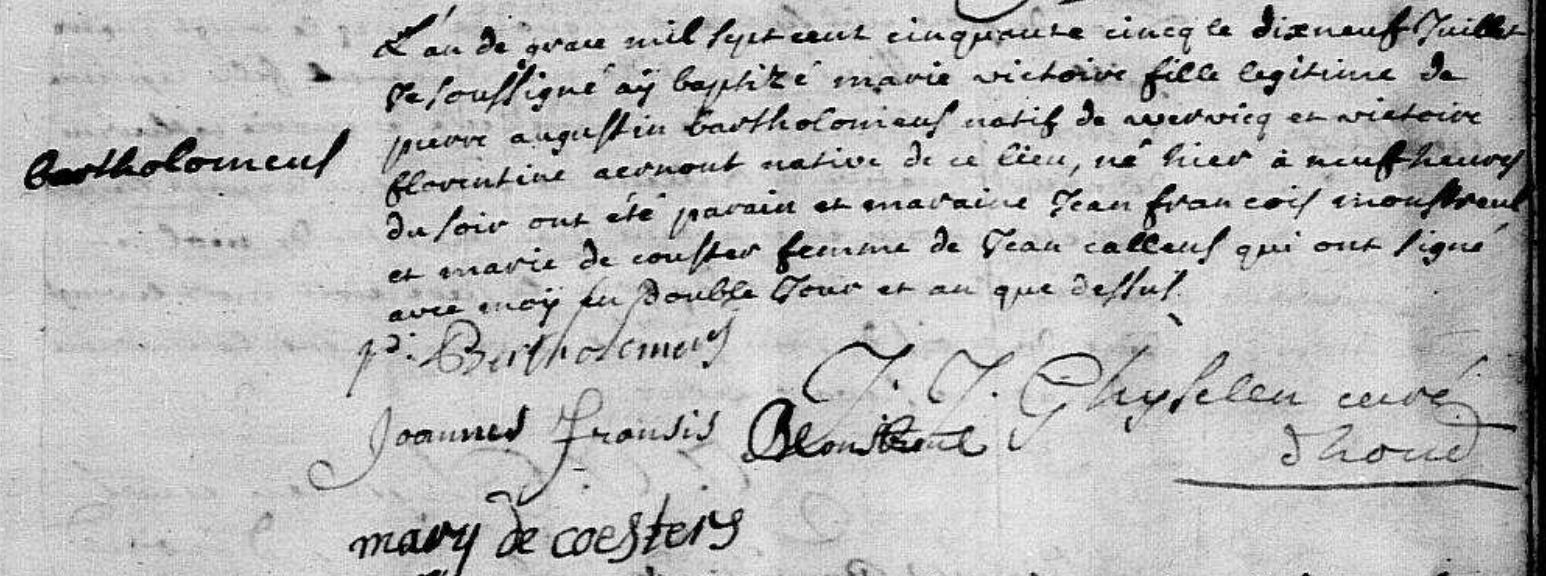 L'an de grace mil sept cent cinquante cincq le dixneuf Juillet
Je soussigné aÿ baptizé marie victoire fille legitime de
pierre augustin bartholomeus natif de wervicq et victoire
bartholomeus
florentine aernout native de ce lieu, né hier à neuf heures
du soir ont été parain et maraine Jean francois monstreul
et marie de couster femme de Jean callens qui ont signé
avec moÿ en double Jour et an que dessus.
p: Bartholomeus
J. J. Ghyselen curé
Joannes fransis Monstreul
d'houd
mary de coesters